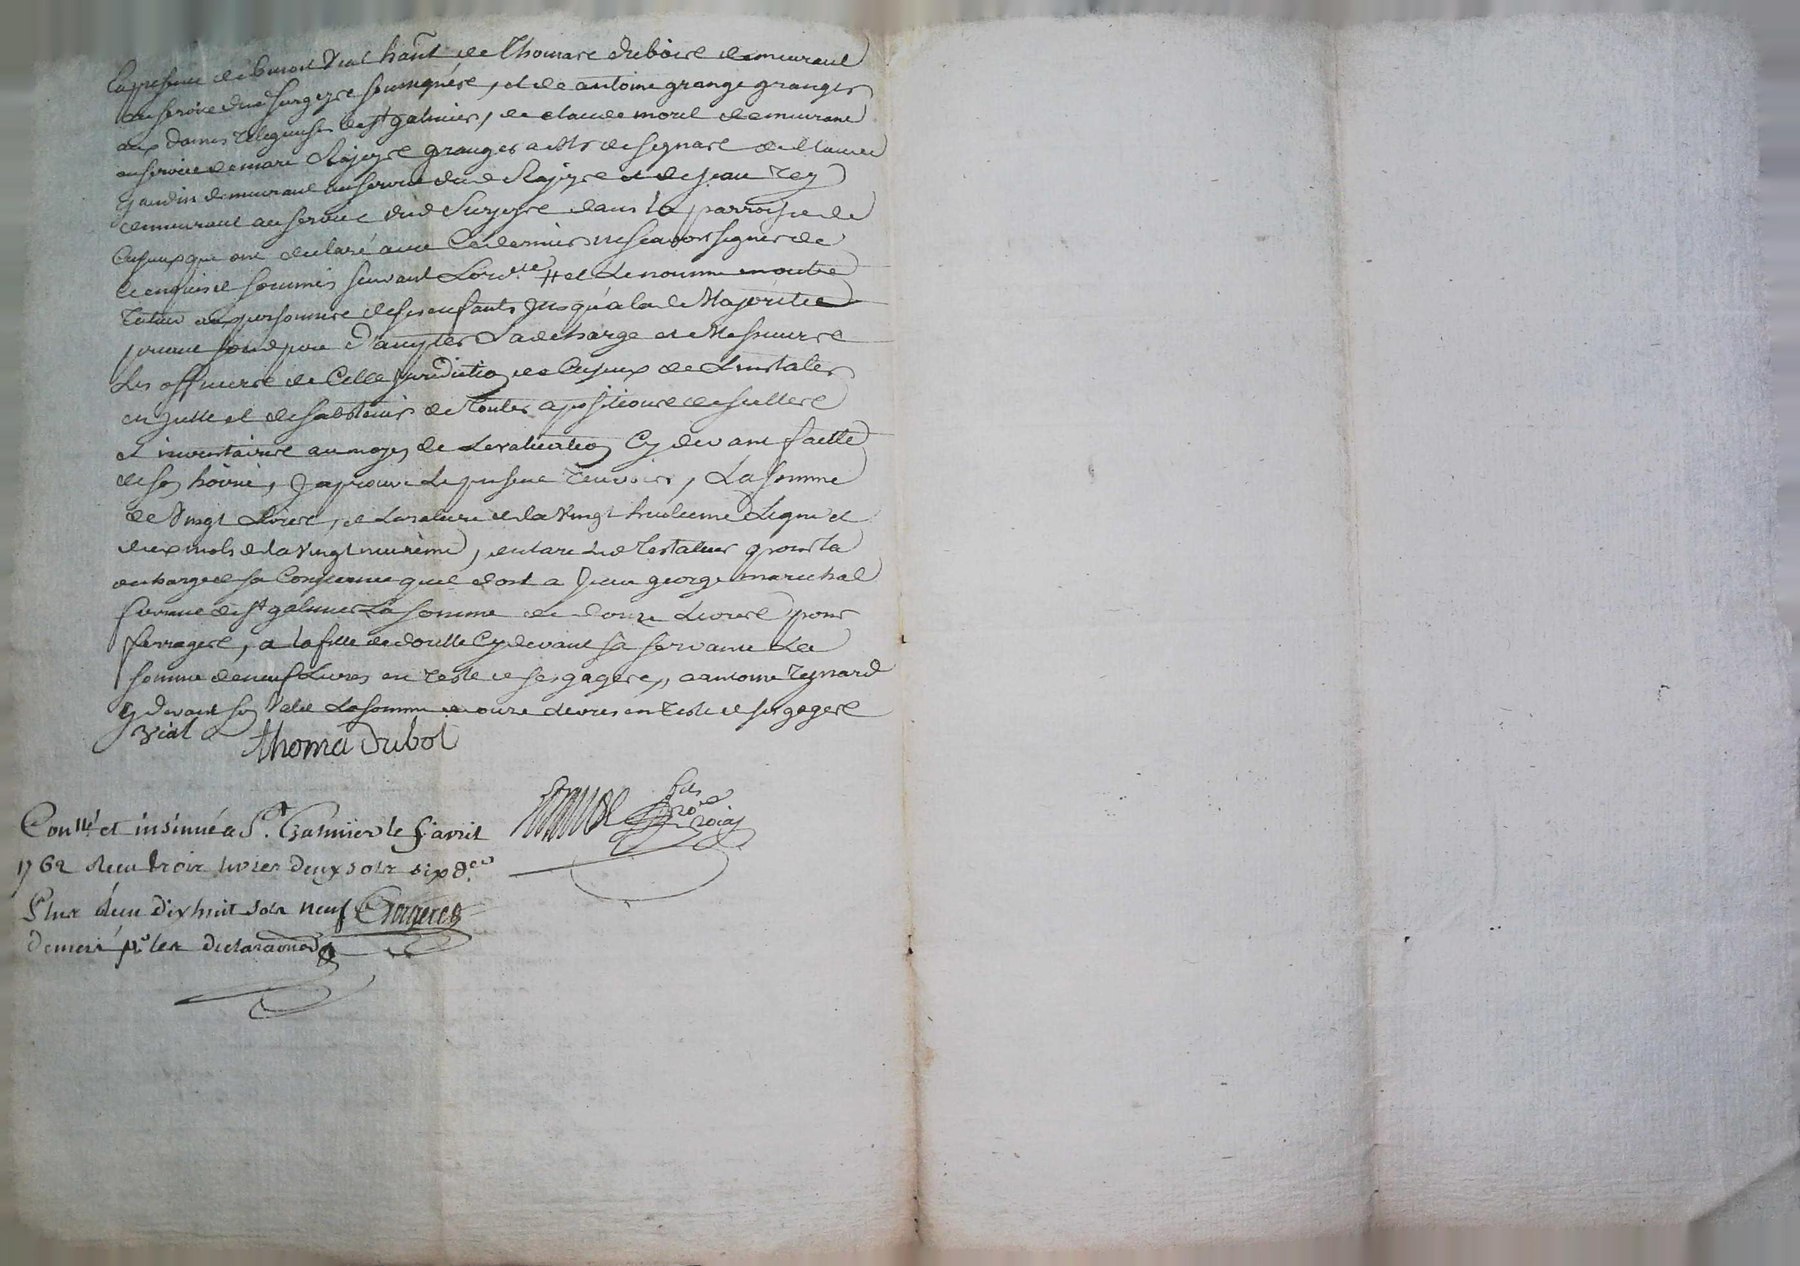 En presence de benoit Vial hant de Thomas dubois demeurant
au service dud Surgeyre et de antoine grange granger
aux dames Religieuses de St galmier, de claude morel demeurant
au service de granger de
gaudin demeurant au service dud et de jean Rey
demeurant au service dud Surgeyre dans la parroisse de
Cuseux que ont declaré avec Ce dernier ne scavoir signer de
ce enquis et sommés suivant Lord.ce # et Le nomme en outre
tuteur aux personnes de ses enfants jusqu'a la de Majorité
prieur d'accepter La charge et Messieurs
Les officiers de Celle jurisdiction de Cuseux de L'instaler
en jcelle et de sabstenir de toutes apositions de scelles
et inventaires au moyen de Levaluation Cy devant faitte
de son hoirie, J aprouve Le present renvoir, La somme
de Vingt Livres, et La rature de la Vingt huitieme Ligne et
deux mots de la Vingt neuvieme, declare Led Testateur que pour la
decharge de sa Conscience quil doit a jean george marechal
de St galmier La somme de douze Livres pour
ferrages, a la fille de doutte Cy devant sa servante La
somme de neuf Livres en reste de ses gages, a antoine Reynard
Cy devant son Valet La somme de onze Livres en reste de ses gages
Vial thoma dubot
Con.llé et insinué a St. Galmier le 5 avril
1762 Reçu trois livres deux sols six d.ers
Plus Reçu dix huit sols neuf
deniers p.r les declarations